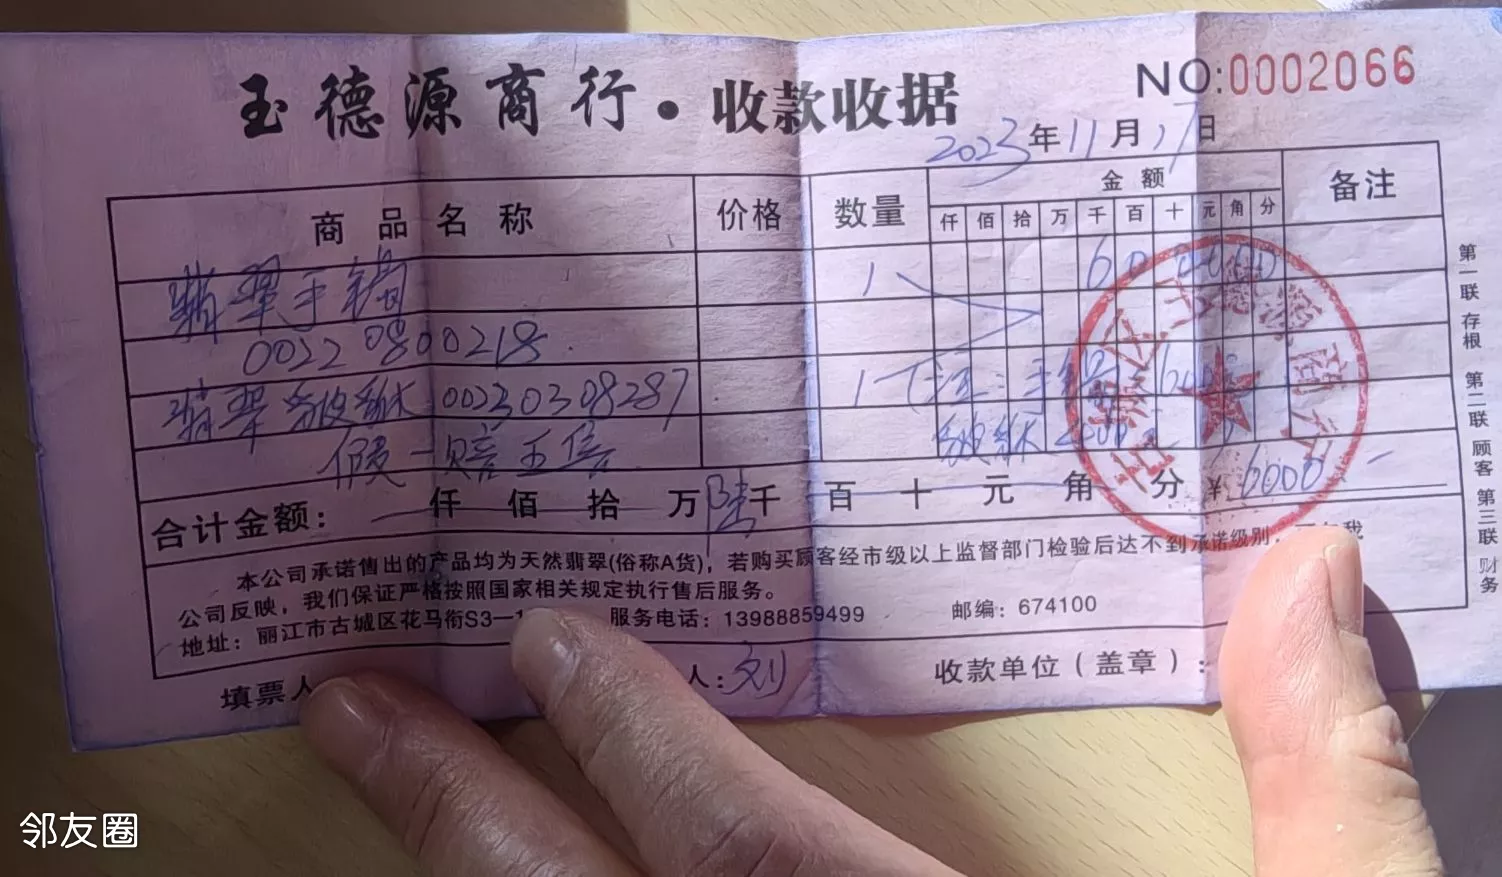 玉德源商行·收款收据
NO:0002066
2023年11月17日
商品名称 价格 数量 金额 备注
仟 佰 拾 万 千 百 十 元 角 分
翡翠手镯 1 6000
00220800218
翡翠貔貅 00230308287 1
手镯
假一赔五倍 貔貅
合计金额： 仟 佰 拾 万 陆千 百 十 元 角 分 ¥6000
本公司承诺售出的产品均为天然翡翠(俗称A货)，若购买顾客经市级以上监督部门检验后达不到承诺级别，
公司反映，我们保证严格按照国家相关规定执行售后服务。
地址：丽江市古城区花马街S3—1 服务电话：13988859499 邮编：674100
填票人 人：刘 收款单位（盖章）：
第一联 存根 第二联 顾客 第三联 财务
邻友圈